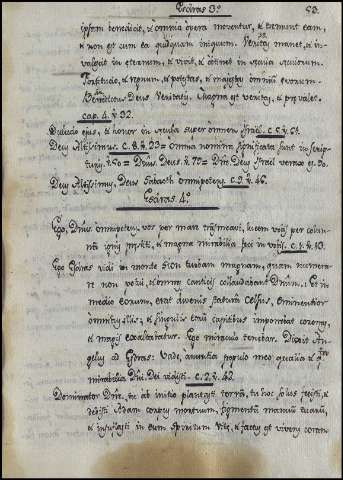 Esdras 3º
53.
ipsum benedicit, & omnia opera moventur, & tremunt eam,
& non est cum ea quidquam iniquum. Veritas manet, & in-
valescit in eternum, & vivit, & obtinet in secula seculorum.
Fortitudo, & regnum, & potestas, & majestas omnium evorum.
Benedictus Deus Veritatis. Magna est veritas, & prevalet.
cap. 4. v. 32.
ejus, & honor in secula super omnem Israel. c. 5. v.
Deus Altissimus. c. 8. v. = omnia nomina
v. 50 = Dñus. Deus. v. = Dñe Deus Israel verax es. 90.
Deus Altissimus, Deus Sabaoth omnipotens. c. 9. v. 46.
Esdras 4º
Ego, Dñus omnipotens, vos per mare lucem vobis per colum-
nam ignis & magna mirabilia feci in vobis. c. 1. v. 13.
Ego Esdras vidi in monte Sion turbam magnam, quam numera-
re non potui, & omnes canticis collaudabant Dñum. Et in
medio eorum, erat juvenis statura celsus, eminentior
omnibus illis, & singulis eorum capitibus imponebat coronas,
& magis exaltabatur. Ego miraculo tenebar. Dixit An-
gelus ad Esdras: Vade, annuntia populo meo qualia & quanta
mirabilia Dñi. Dei vidisti. c. 2. v. 42.
Dominator Dñe, tu ab initio plantasti terra, tu hoc solus fecisti, &
dedisti Adam corpus mortuum, figmentum manuum tuarum,
& insuflasti in eum spiritum vite, & factus est vivens coram